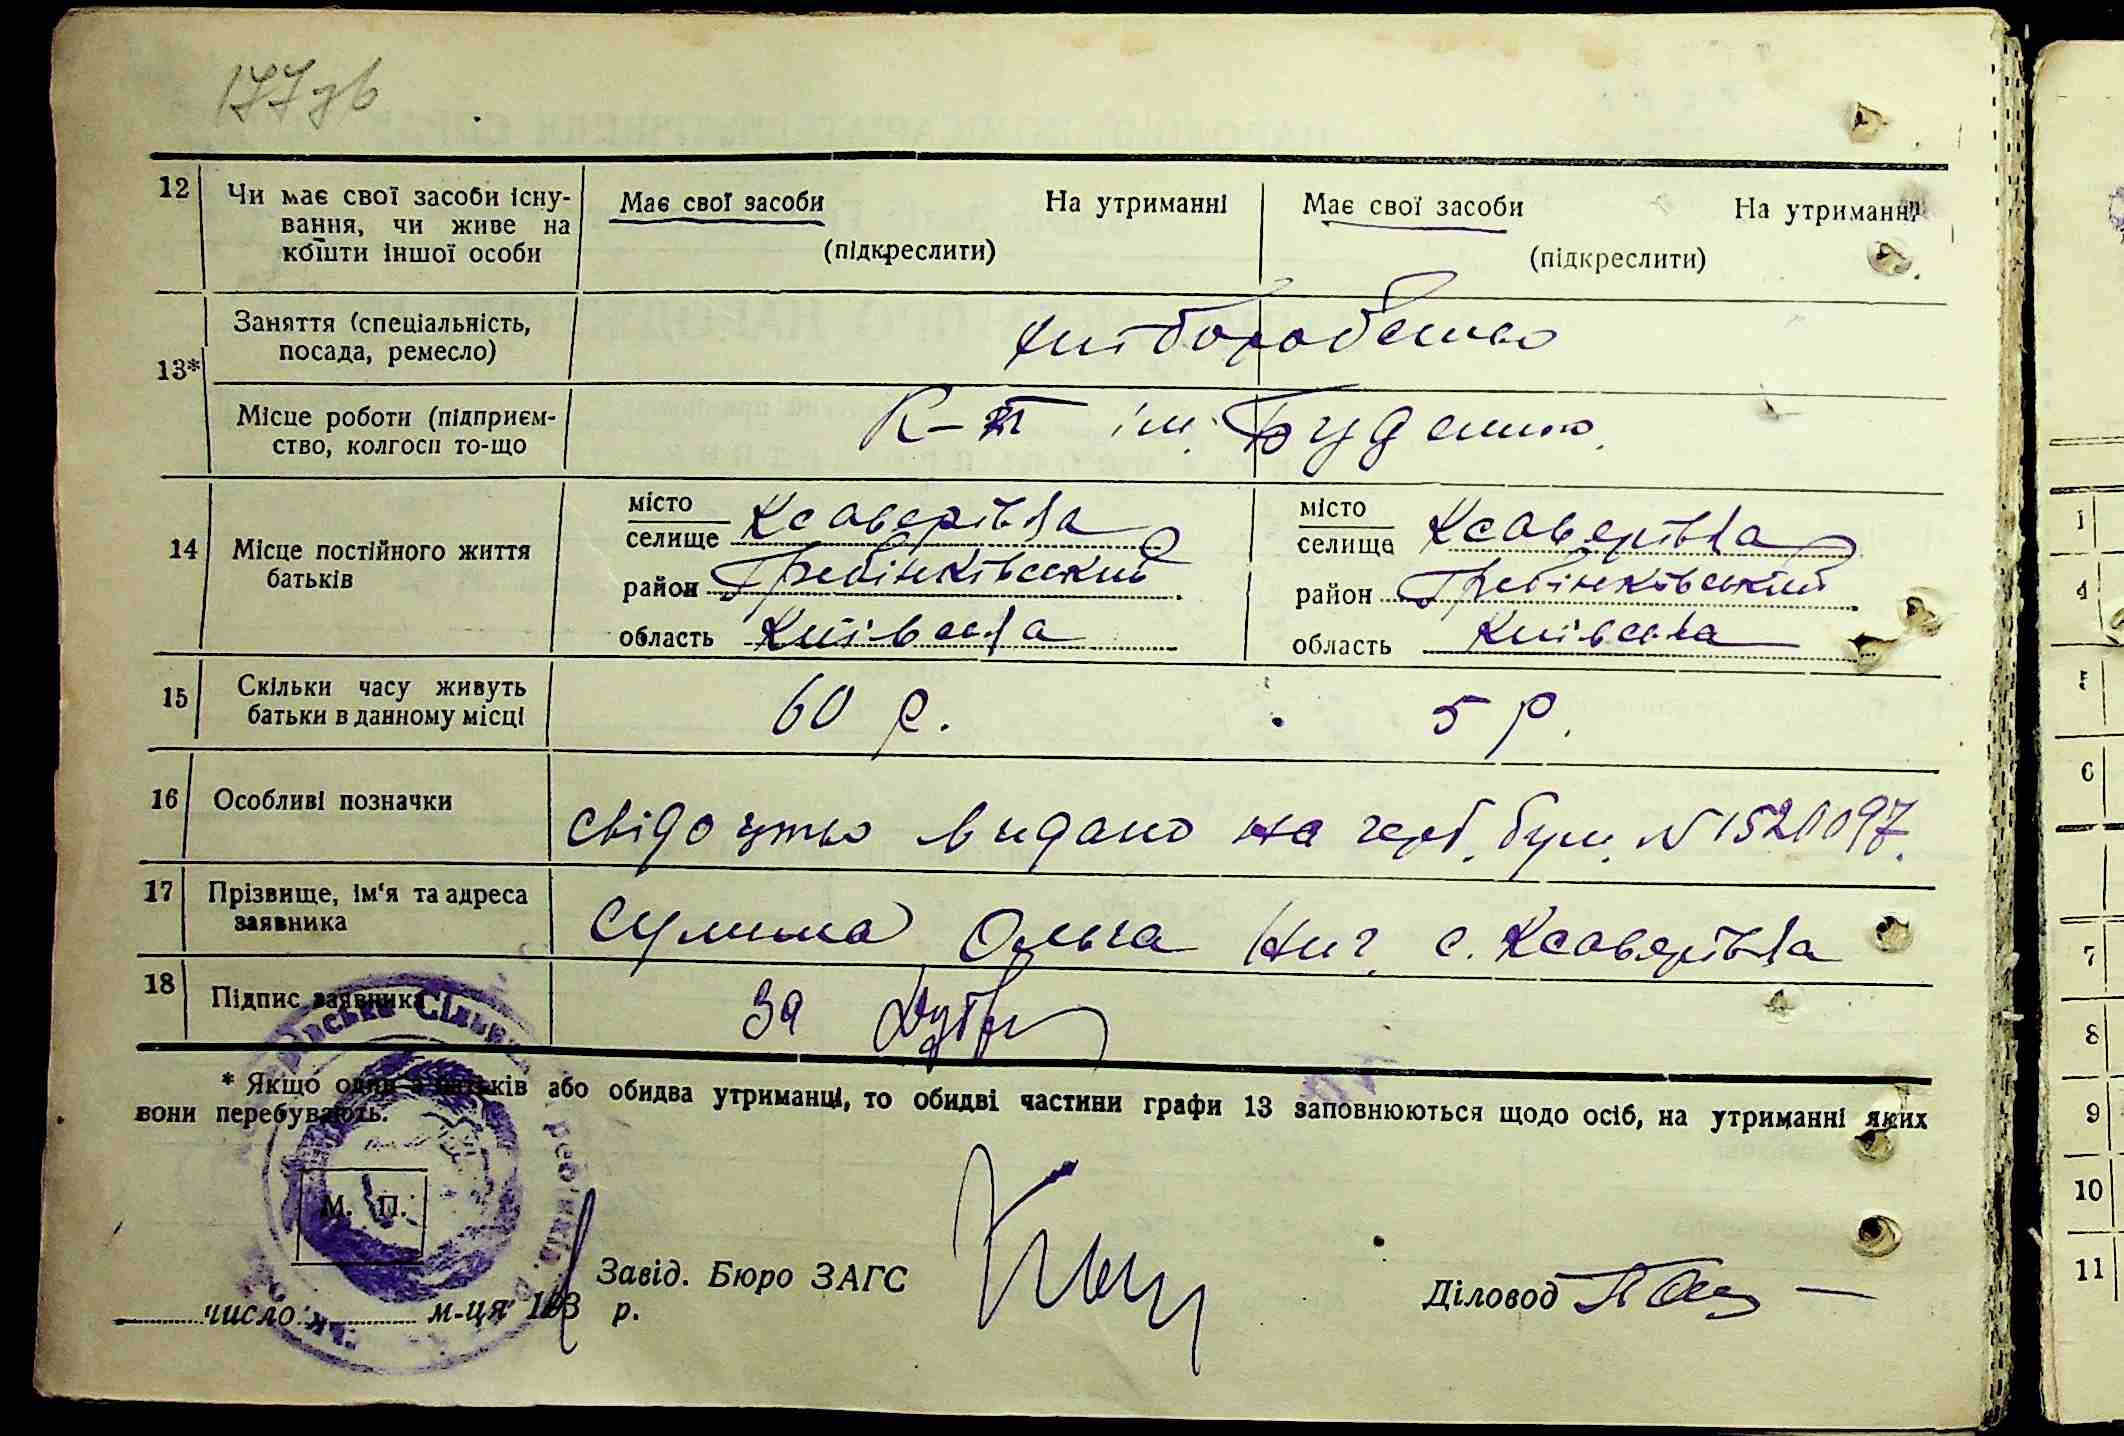 177зв
12 Чи має свої засоби існу- Має свої засоби На утриманні Має свої засоби На утриманні
вання, чи живе на
кошти іншої особи (підкреслити) (підкреслити)
13* Заняття (спеціальність,
посада, ремесло) хліборобство
Місце роботи (підприєм- К-п ім. Будьонно
ство, колгосп то-що
14 Місце постійного життя
батьків
місто
селище Ксаверівка
район Гребінківський
область Київська
місто
селище Ксаверівка
район Гребінківський
область Київська
15 Скільки часу живуть
батьки в данному місці 60 р. 5 р.
16 Особливі позначки свідоцтво видано на герб. бум. N 1520097.
17 Прізвище, ім'я та адреса
заявника Сулима Ольга Нич. с. Ксаверівка
18 Підпис заявника За
* Якщо один з батьків або обидва утриманці, то обидві частини графи 13 заповнюються щодо осіб, на утриманні яких
вони перебувають.
М. П.
Завід. Бюро ЗАГС Діловод
число м-ця 193 р.
1
4
5
6
7
8
9
10
11